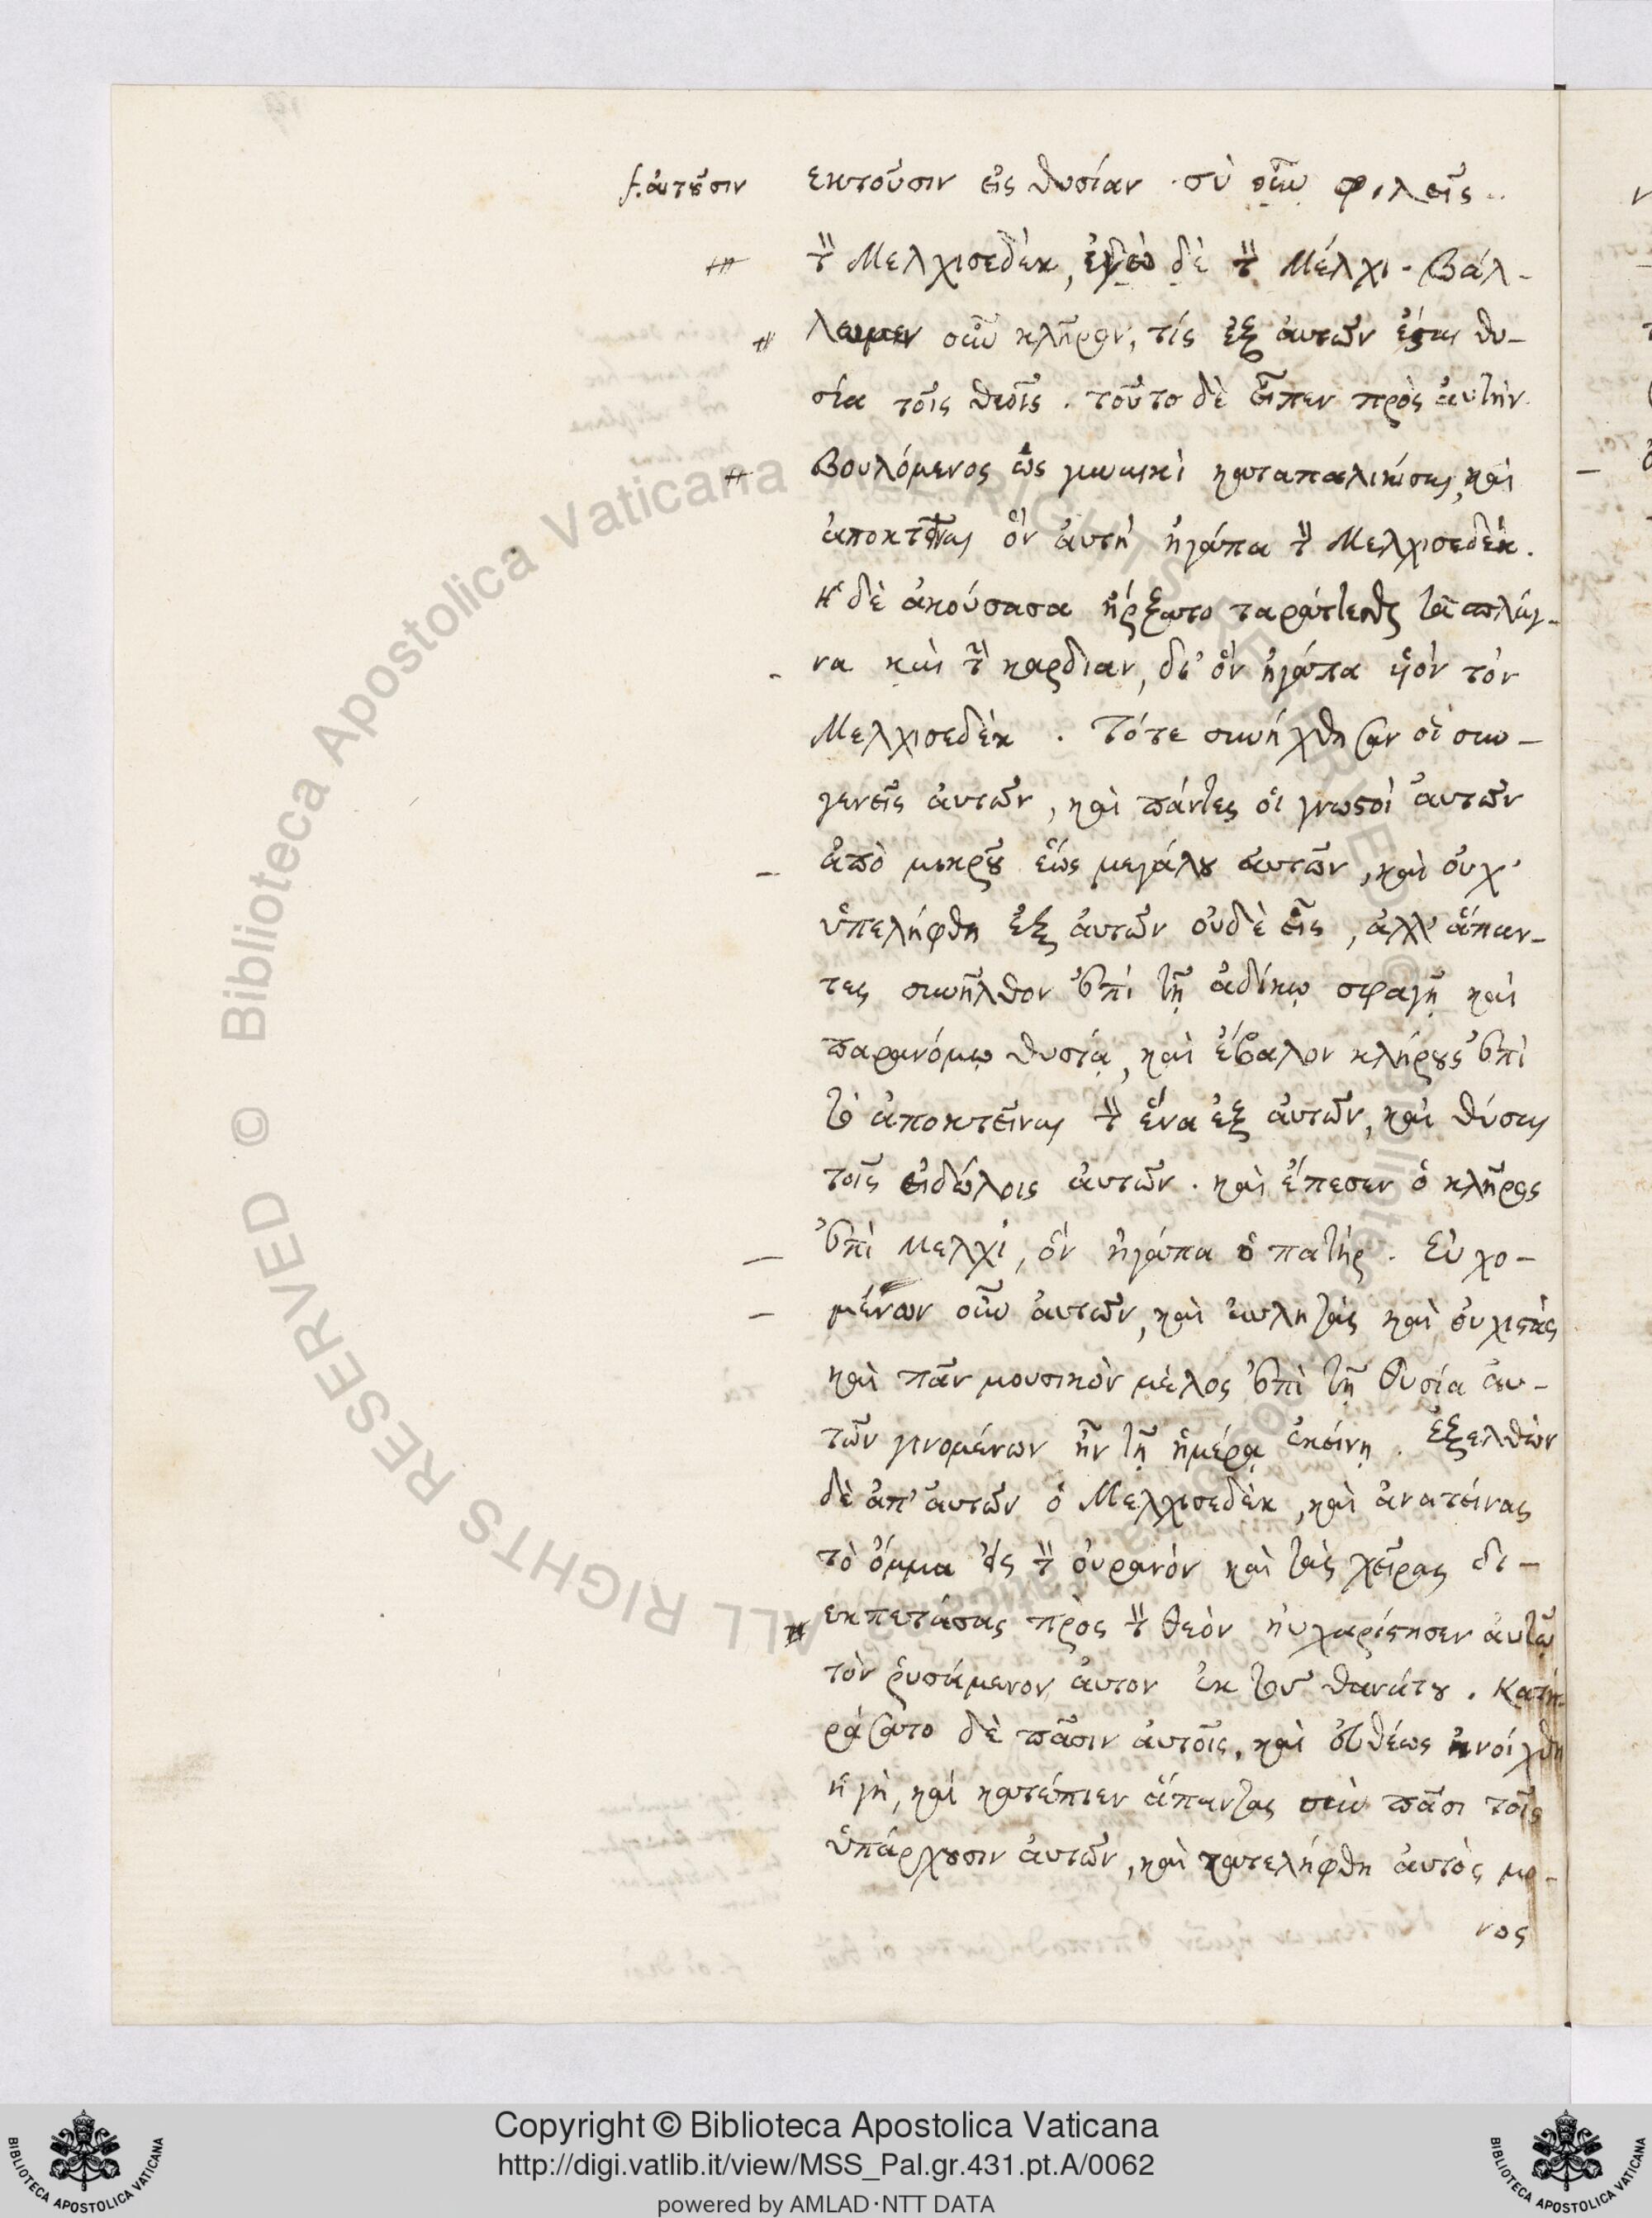 f. αἰτοῦσιν εκτοῦσιν εἰς θυσίαν · σὺ οὖν φιλεῖς ..
τὸν Μελχισεδὲκ, ἐγὼ δὲ τὸν Μέλχι · βάλ-
λωμεν οὖν κλῆρον, τίς ἐξ ἀυτῶν ἔσται θυ-
σία τοῖς θεοῖς . τοῦτο δὲ εἶπεν πρὸς ἀυτὴν
βουλόμενος ὡς γυναικὶ
ἀποκτεῖναι ὃν ἀυτὴ ἠγάπα τὸν Μελχισεδὲκ.
Ἡ δὲ ἀκούσασα ἤρξατο ταράττεσθαι τὰ σπλάγ-
να καὶ τὴν καρδιαν, δι' ὃν ἠγάπα ὑὸν τὸν
Μελχισεδὲκ . Τότε συνήχθησαν οἱ συν-
γενεῖς ἀυτῶν, καὶ πάντες οἱ γνωστοὶ ἀυτῶν
ἀπὸ μικροῦ ἕως μεγάλου ἀυτῶν, καὶ ὀυχ'
ὑπελήφθη ἐξ ἀυτῶν ὀυδὲ εἷς, ἀλλ' ἅπαν-
τες συνῆλθον ἐπὶ τῇ ἀδίκῳ σφαγῇ καὶ
παρανόμῳ θυσίᾳ, καὶ ἔβαλον κλήρους ἐπὶ
τὸ ἀποκτεῖναι τὸν ἕνα ἐξ ἀυτῶν, καὶ θύσαι
τοῖς εἰδώλοις ἀυτῶν . καὶ ἔπεσεν ὁ κλῆρος
ἐπὶ Μελχὶ, ὃν ἠγάπα ὁ πατὴρ . Ἐυχο-
μένων οὖν ἀυτῶν, καὶ ἀυλητὰς καὶ ὀυχιστὰς
καὶ πᾶν μουσικὸν μέλος ἐπὶ τῇ θυσία ἀυ-
τῶν γινομένων ἦν τῇ ἡμέρᾳ ἐκείνῃ . ἐξελθὼν
δὲ ἀπ' ἀυτῶν ὁ Μελχισεδὲκ, καὶ ἀνατείνας
τὸ ὄμμα εἰς τὸν ὀυρανὸν καὶ τὰς χεῖρας δι-
εκπετάσας πρὸς τὸν θεὸν ἠυχαρίστησεν ἀυτῷ
τὸν ῥυσάμενον ἀυτον ἐκ τοῦ θανάτου . Κατη-
ράσατο δὲ πᾶσιν ἀυτοῖς, καὶ ἐυθέως ἠνοίχθη
ἡ γὴ, καὶ κατέπιεν ἅπαντας σὺν πᾶσι τοῖς
ὑπάρχουσιν ἀυτῶν, καὶ κατελήφθη ἀυτὸς μο-
νος
© Biblioteca Apostolica Vaticana ALL RIGHTS RESERVED
Copyright © Biblioteca Apostolica Vaticana
http://digi.vatlib.it/view/MSS_Pal.gr.431.pt.A/0062
powered by AMLAD·NTT DATA
BIBLIOTECA APOSTOLICA VATICANA
BIBLIOTECA APOSTOLICA VATICANA